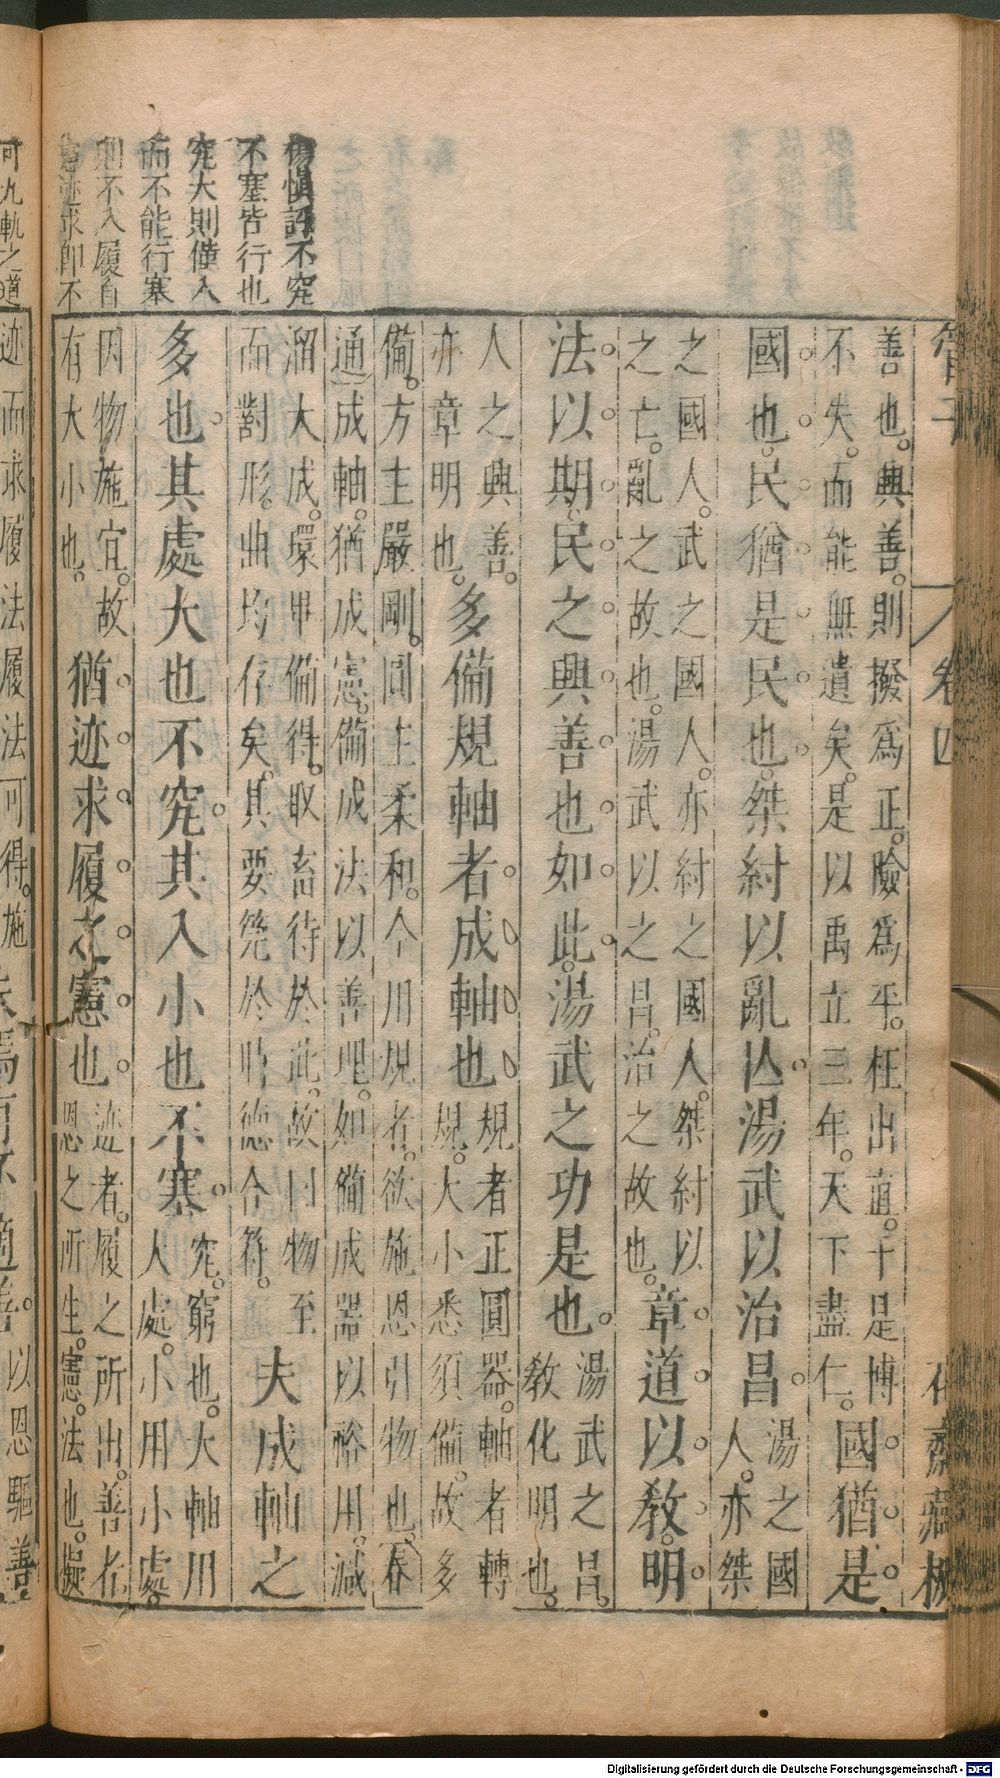 管子 卷四 花齋藏板
善也。典善。則撥為正。險為平。枉出直。于是博
不失。而能無遺矣。是以禹立三年。天下盡仁。
國猶是
國也。民猶是民也。桀紂以亂亡。湯武以治昌。
湯之國
人。亦桀
之國人。武之國人。亦紂之國人。桀紂以
之亡。亂之故也。湯武以之昌。治之故也。
章道以教。明
法以期。民之興善也如此。湯武之功是也。
湯武之昌。
教化明也。
人之興善。
亦章明也。
多備規軸者。成軸也。
規者正圓器。軸者轉
規。大小悉須備。故多
備。方主嚴剛。圓主柔和。今用規者。欲施恩引物也。春
通成軸。猶成憲。備成法以善理。如備成器以裕用。減
溜大成。環甲備得。取畜待於此。故曰物至
而對形。曲均存矣。其要筦於
德合符。
夫成軸之
多也。其處大也不究。其入小也不塞。
究。窮也。大軸用
人處。小用小處。
因物施宜。故
有大小也。
猶迹求履之憲也。
迹者。履之所出。善者
恩之所生。憲。法也。擬
楊慎評不究
不塞皆行也
究大則僅入
而不能行塞
則不入履自
憲迹求即不
可九軌之道
迹而求履法履法可得。施
適善。以恩驅善
Digitalisierung gefördert durch die Deutsche Forschungsgemeinschaft - DFG